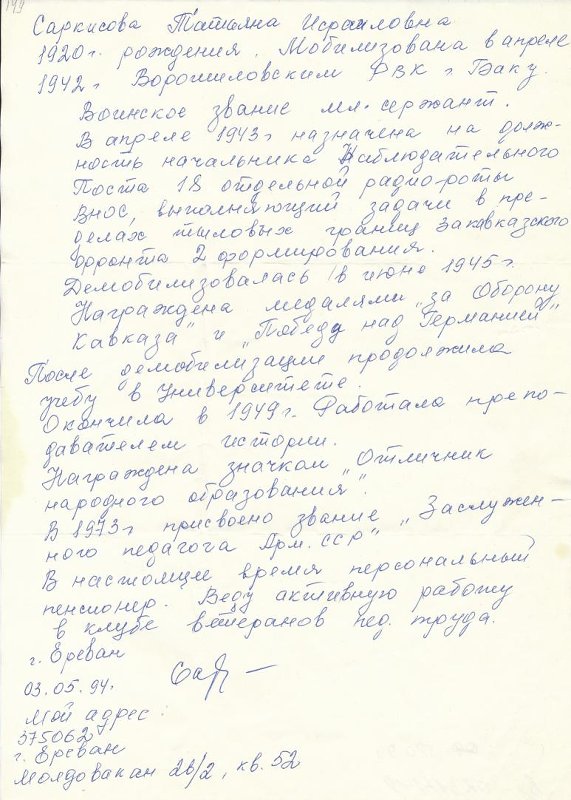 149
Саркисова Татьяна Исраиловна
1920 г. рождения. Мобилизована в апреле
1942 г. Ворошиловским РВК г. Баку.
Воинское звание мл. сержант.
В апреле 1943 г назначена на долж-
ность начальника Наблюдательного
Поста 18 отдельной радио-роты
ВНОС, выполняющий задачи в пре-
делах тыловых границ Закавказского
фронта 2 формирования.
Демобилизовалась в июне 1945 г.
Награждена медалями „за Оборону
Кавказа" и „Победу над Германией"
После демобилизации продолжила
учебу в Университете.
Окончила в 1949 г. Работала препо-
давателем истории.
Награждена значком „Отличник
народного образования".
В 1973 г присвоено звание „Заслужен-
ного педагога Арм. ССР"
В настоящее время персональный
пенсионер. Веду активную работу
в клубе ветеранов пед. труда.
г. Ереван
03.05.94 г.
Мой адрес
375062
г. Ереван
Молдовакан 28/2, кв. 52